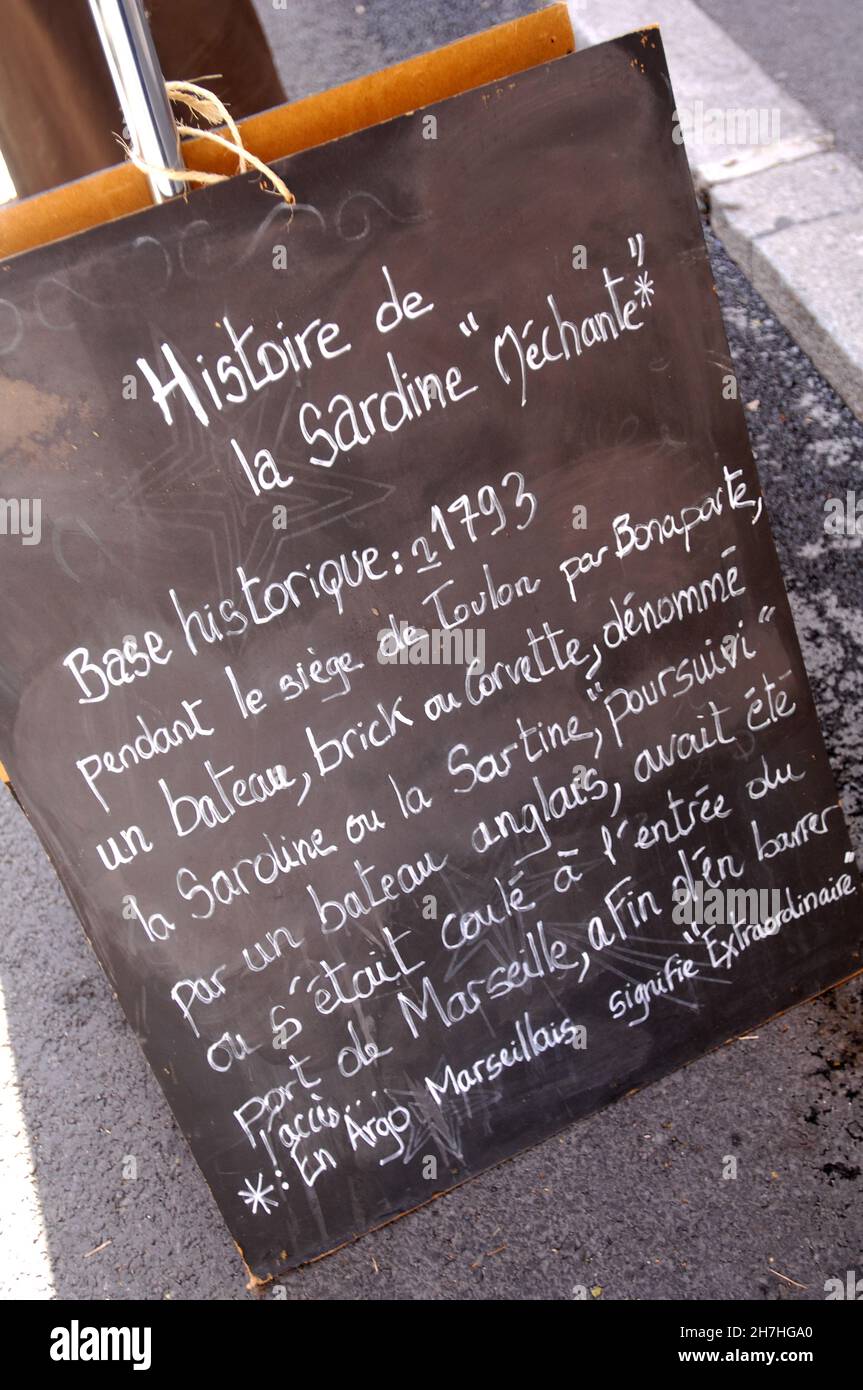 Histoire de
la Sardine "Méchante"*
Base historique : 1793
pendant le siège de Toulon par Bonaparte,
un bateau, brick ou Corvette, dénommé
la Sardine ou la Sartine, "poursuivi"
par un bateau anglais, avait été
ou s'était coulé à l'entrée du
port de Marseille, afin d'en barrer
l'accès...
* : En Argo Marseillais signifie "Extraordinaire"
alamy
Image ID: 2H7HGA0
www.alamy.com